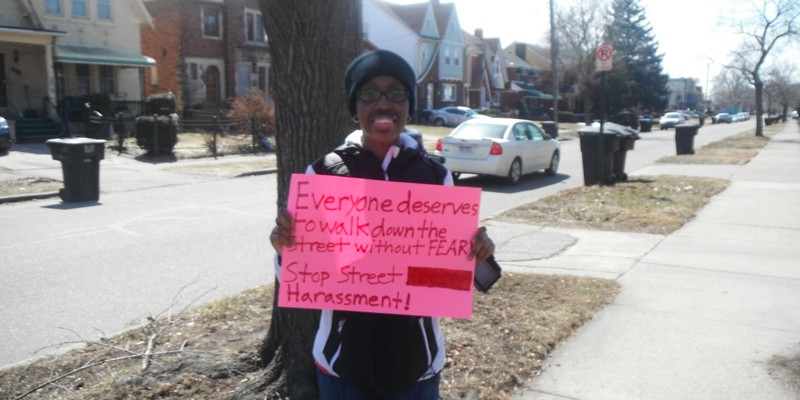 Everyone deserves
to walk down the
street without FEAR!
Stop Street
Harassment!